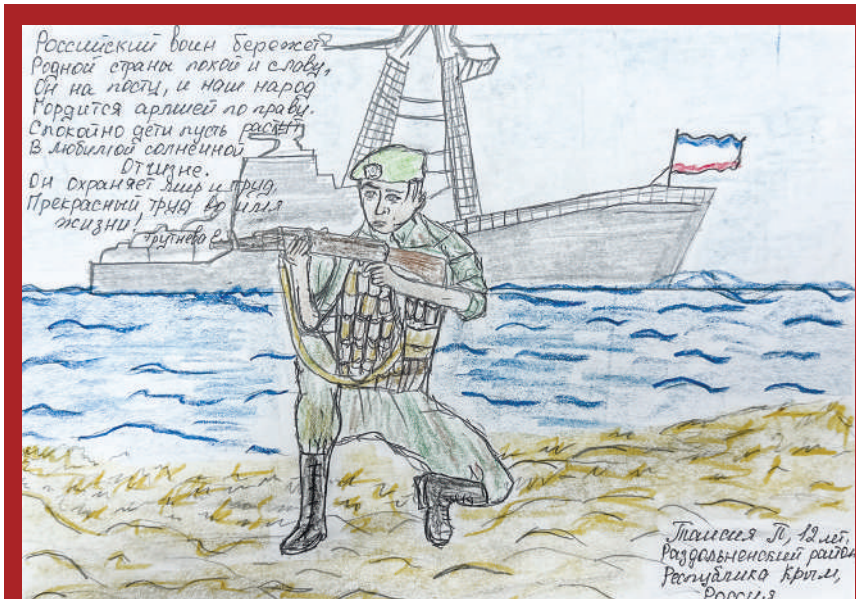 Российский воин бережет
Родной страны покой и славу,
Он на посту, и наш народ
Гордится армией по праву.
Спокойно дети пусть растут
В любимой солнечной
Отчизне.
Он охраняет мир и труд,
Прекрасный труд во имя
жизни!
Трутнева Е.
Таисия П, 12 лет,
Раздольненский район
Республика Крым,
Россия